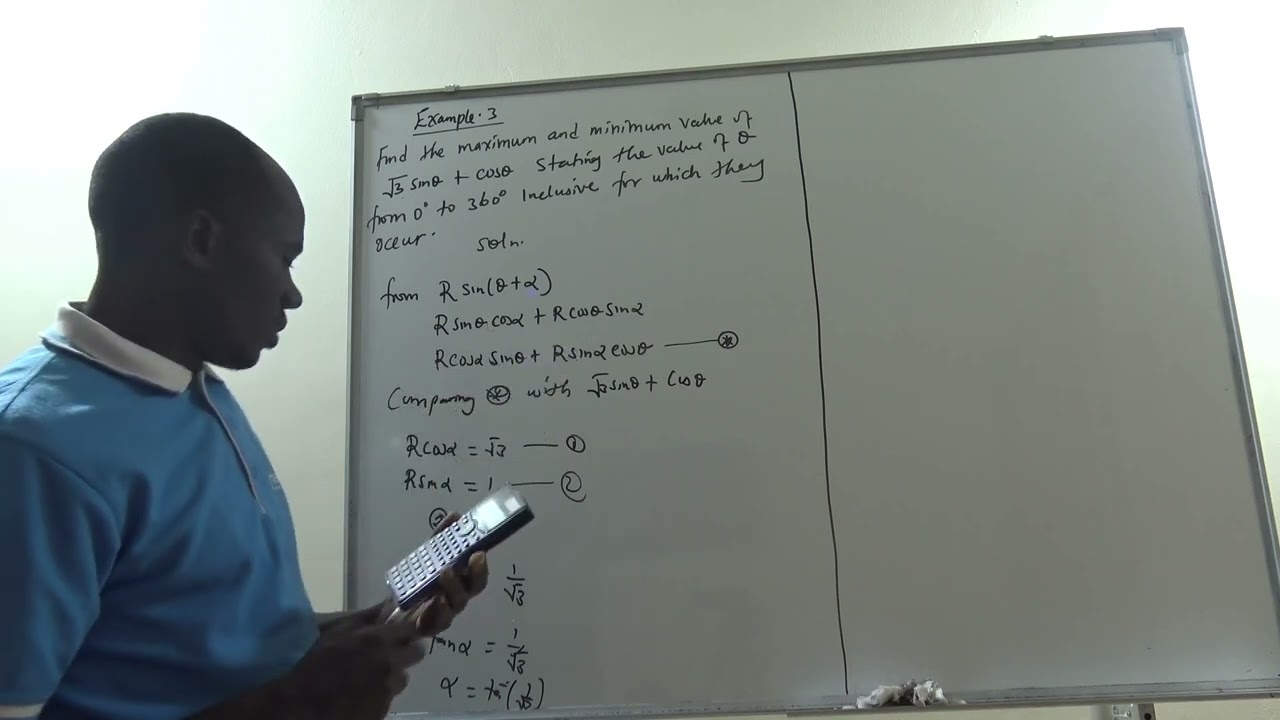 Example. 3
Find the maximum and minimum value of
√3 sinθ + cosθ Stating the value of θ
from 0° to 360° Inclusive for which they
occur.
soln.
from R sin(θ+α)
R sinθ cosα + R cosθ sinα
R cosα sinθ + R sinα cosθ —— ⊛
Comparing ⊛ with √3 sinθ + Cosθ
R cosα = √3 —— ①
R sinα = 1 —— ②
②
1/√3
tanα = 1/√3
α = tan⁻¹(1/√3)